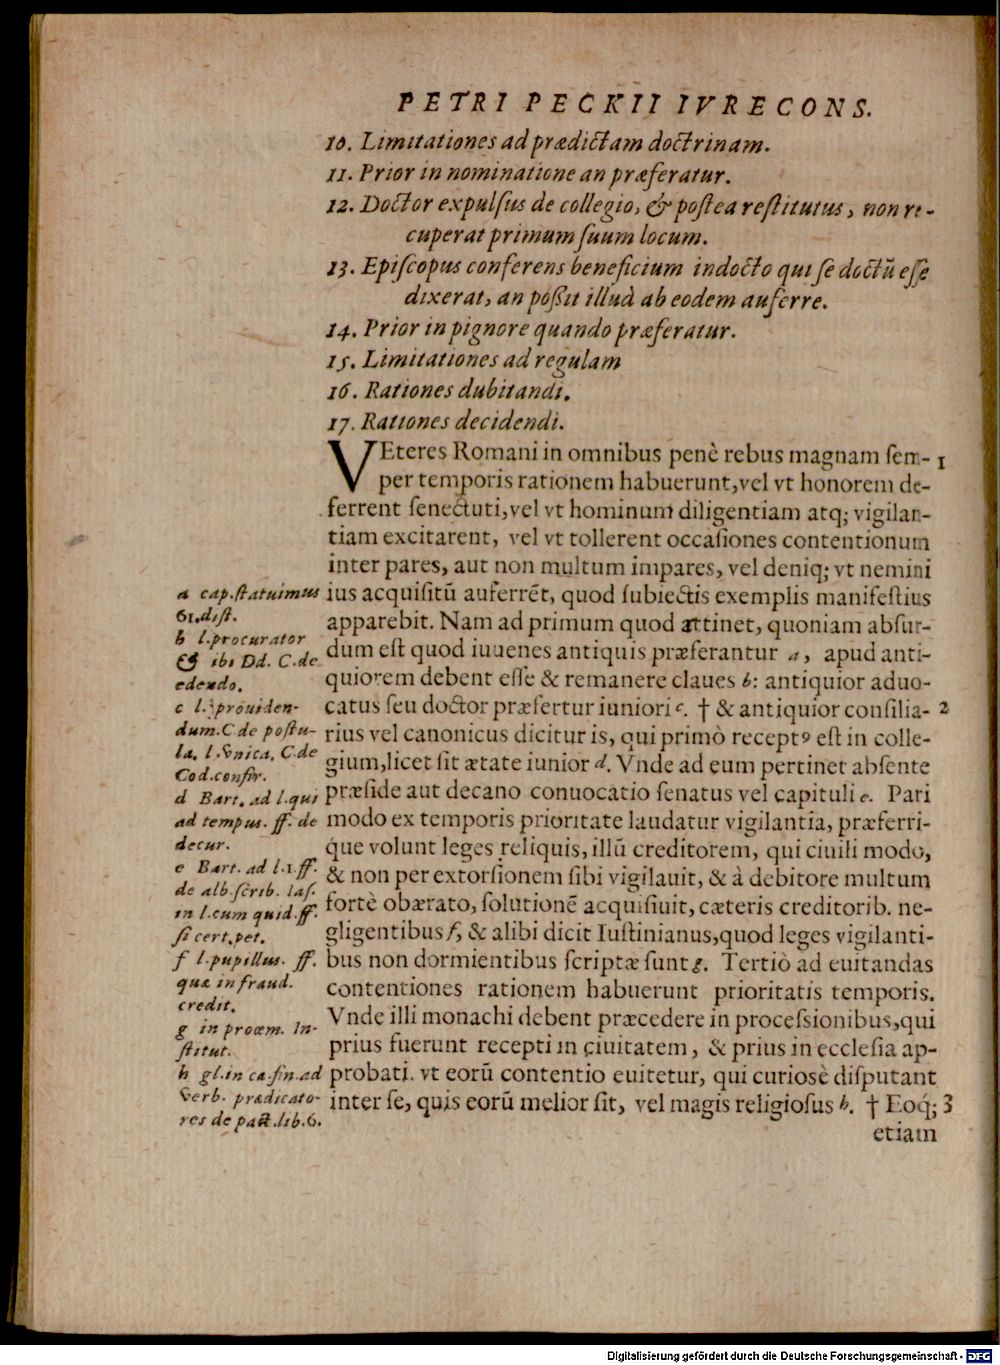 PETRI PECKII IVRECONS.
10. Limitationes ad prædictam doctrinam.
11. Prior in nominatione an præferatur.
12. Doctor expulſus de collegio, & poſtea reſtitutus, non re-
cuperat primum ſuum locum.
13. Epiſcopus conferens beneficium indocto qui ſe doctū eſſe
dixerat, an poſſit illud ab eodem auferre.
14. Prior in pignore quando præferatur.
15. Limitationes ad regulam
16. Rationes dubitandi.
17. Rationes decidendi.
VEteres Romani in omnibus penè rebus magnam ſem- 1
per temporis rationem habuerunt, vel vt honorem de-
ferrent ſenectuti, vel vt hominum diligentiam atq; vigilan-
tiam excitarent, vel vt tollerent occaſiones contentionum
inter pares, aut non multum impares, vel deniq; vt nemini
ius acquiſitū auferrēt, quod ſubiectis exemplis manifeſtius
apparebit. Nam ad primum quod attinet, quoniam abſur-
dum eſt quod iuuenes antiquis præferantur a, apud anti-
quiorem debent eſſe & remanere claues b: antiquior aduo-
catus ſeu doctor præfertur iuniori c. † & antiquior conſilia- 2
rius vel canonicus dicitur is, qui primò receptꝰ eſt in colle-
gium, licet ſit ætate iunior d. Vnde ad eum pertinet abſente
præſide aut decano conuocatio ſenatus vel capituli e. Pari
modo ex temporis prioritate laudatur vigilantia, præferri-
que volunt leges reliquis, illū creditorem, qui ciuili modo,
& non per extorſionem ſibi vigilauit, & à debitore multum
fortè obærato, ſolutionē acquiſiuit, cæteris creditorib. ne-
gligentibus f, & alibi dicit Iuſtinianus, quod leges vigilanti-
bus non dormientibus ſcriptæ ſunt g. Tertiò ad euitandas
contentiones rationem habuerunt prioritatis temporis.
Vnde illi monachi debent præcedere in proceſsionibus, qui
prius fuerunt recepti in ciuitatem, & prius in eccleſia ap-
probati. vt eorū contentio euitetur, qui curioſè diſputant
inter ſe, quis eorū melior ſit, vel magis religioſus h. † Eoq́; 3
etiam
a cap. ſtatuimus
61. diſt.
b l. procurator
& ibi Dd. C. de
edendo.
c l. prouiden-
dum. C de poſtu-
la. l. vnica. C. de
Cod. confir.
d Bart. ad l. qui
ad tempus. ff. de
decur.
e Bart. ad l. 1. ff.
de alb. ſcrib. Iaſ.
in l. cum quid. ff.
ſi cert. pet.
f l. pupillus. ff.
quæ in fraud.
credit.
g in proœm. In-
ſtitut.
h gl. in ca. fin. ad
verb. prædicato-
res de pact. lib. 6.
Digitalisierung gefördert durch die Deutsche Forschungsgemeinschaft - DFG